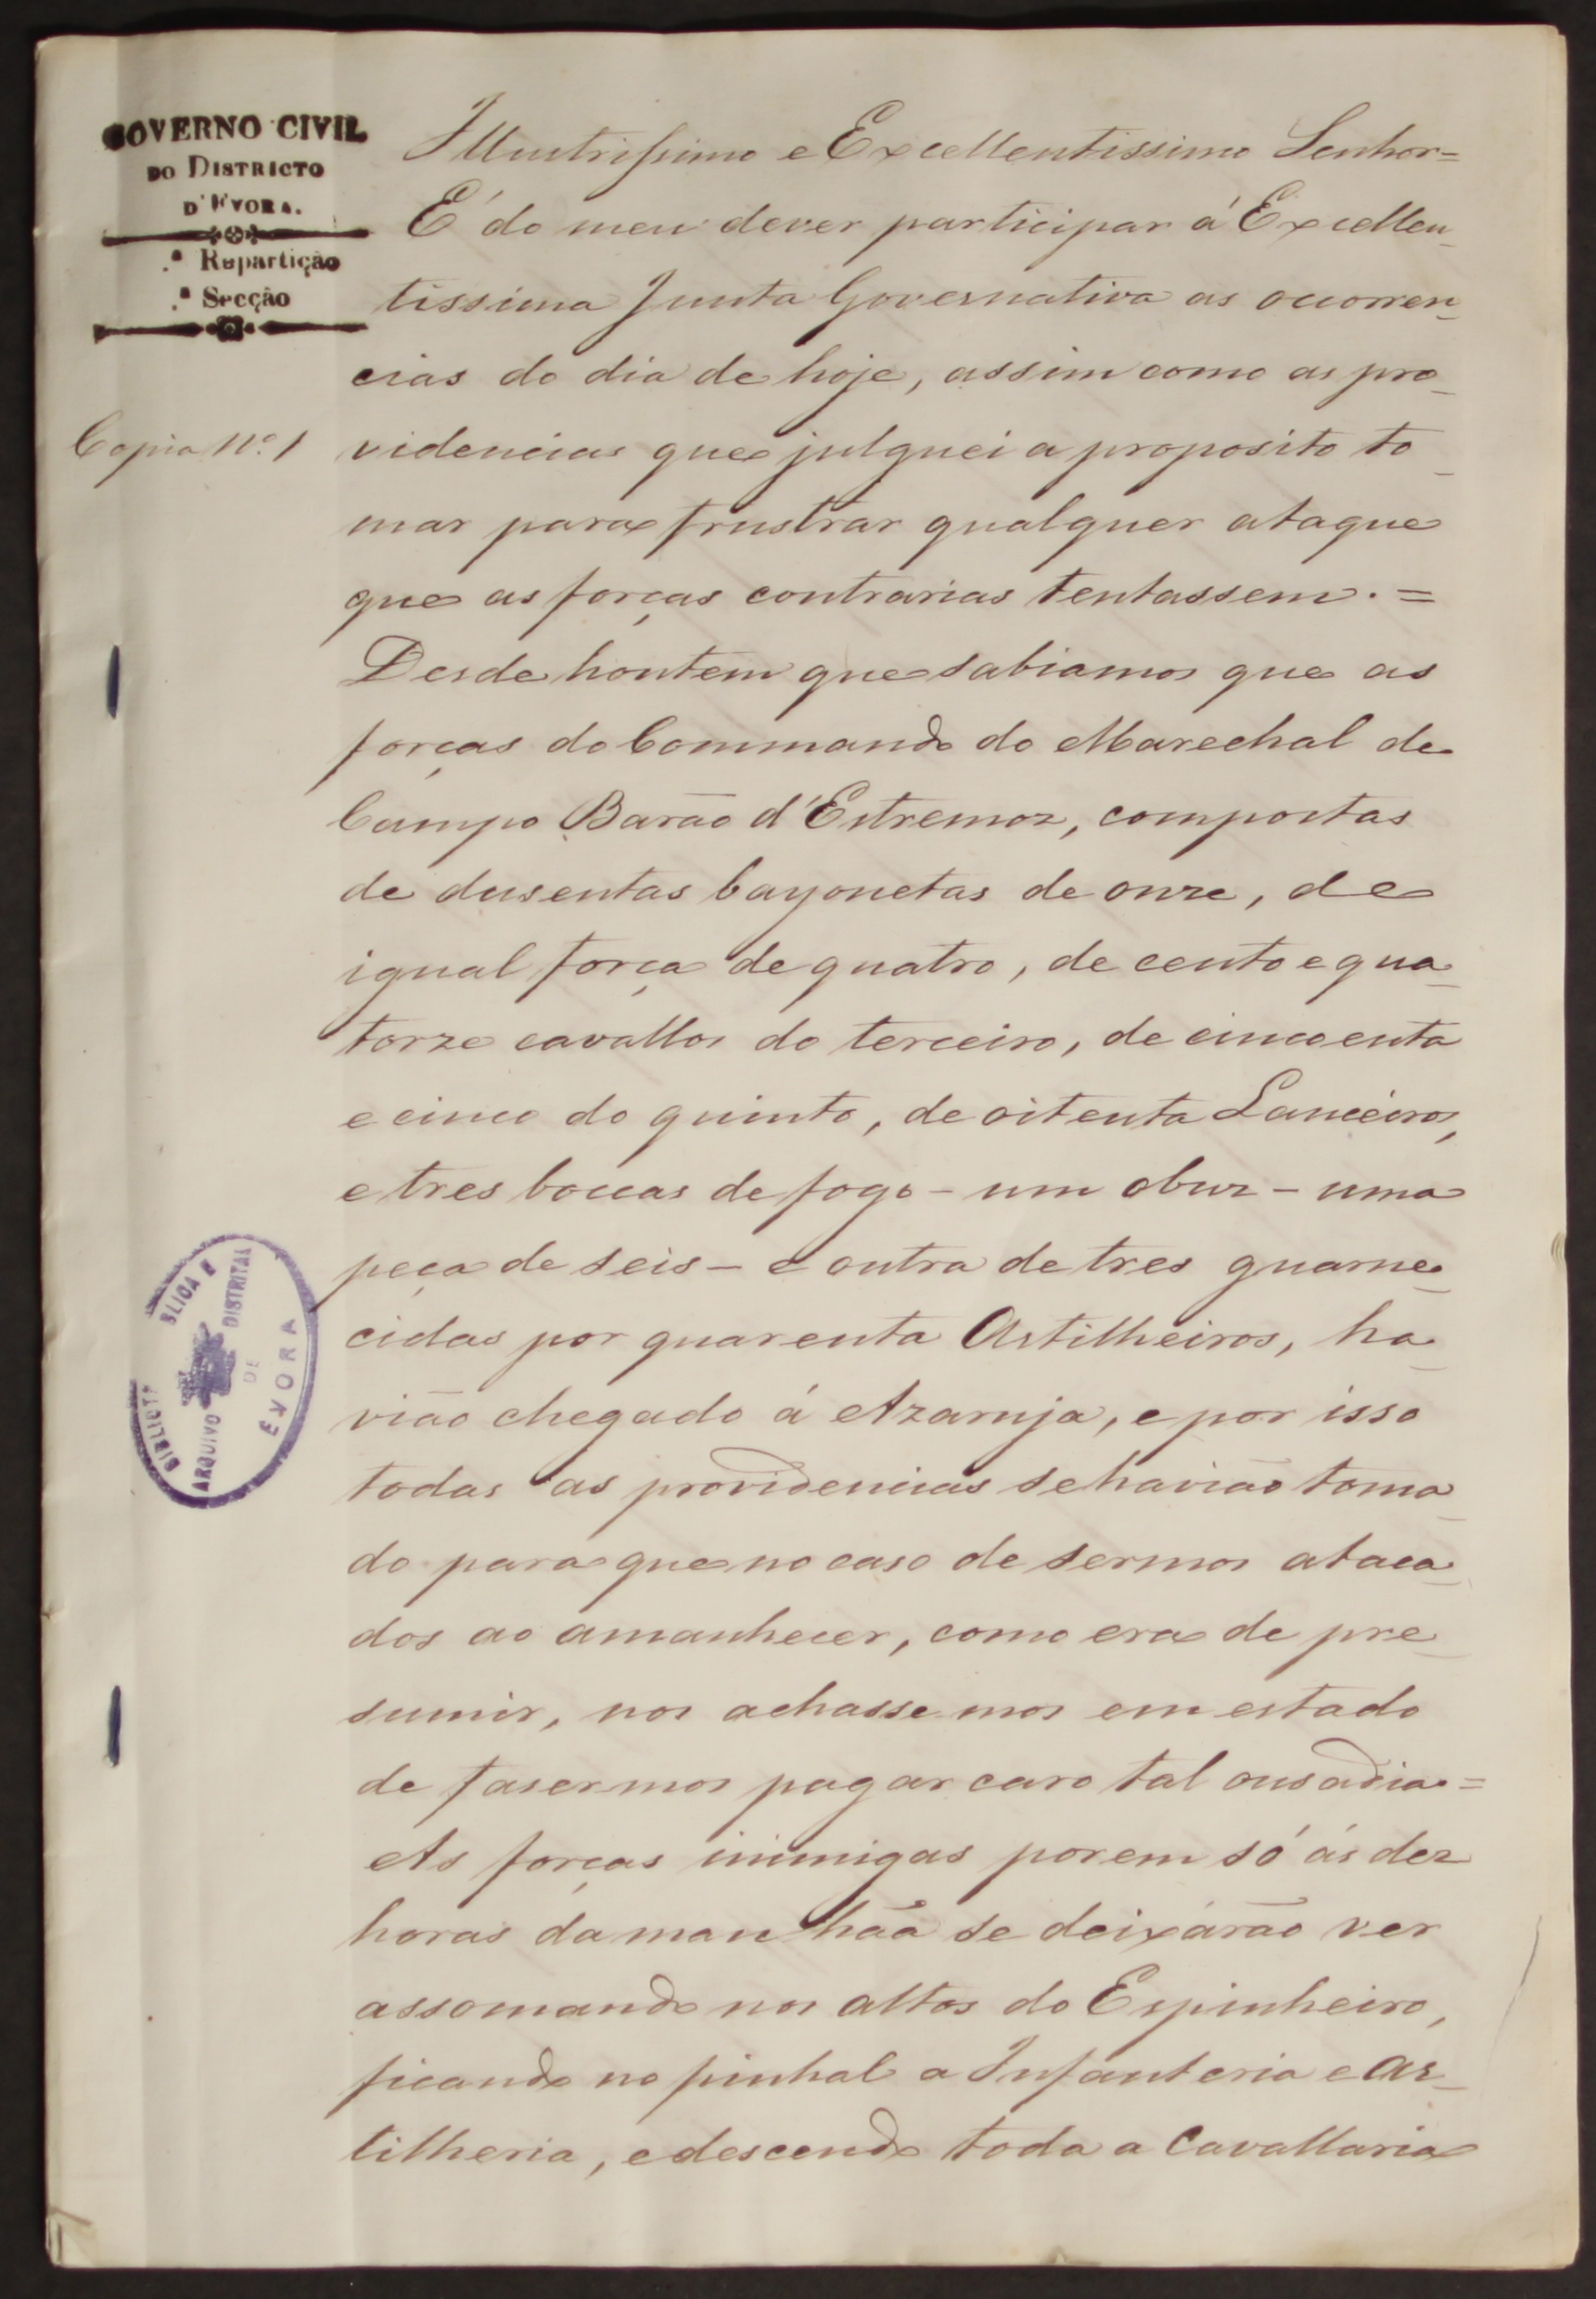 GOVERNO CIVIL
DO DISTRICTO
D'EVORA.
.ª Repartição
.ª Secção
Copia N.º 1
Illustrissimo e Excellentissimo Senhor=
É do meu dever participar á Excellen_
tissima Junta Governativa as ocorren_
cias do dia de hoje, assim como as pro_
videncias que julguei a proposito to_
mar para frustrar qualquer ataque
que as forças contrarias tentassem.=
Desde hontem que sabiamos que as
forças do Commando do Marechal de
Campo Barão d'Estremoz, compostas
de dusentas bayonetas de onze, de
igual força de quatro, de cento e qua_
torze cavallos do terceiro, de cincoenta
e cinco do quinto, de oitenta Lanceiros,
e tres boccas de fogo - um obuz - uma
peça de seis - e outra de tres guarne_
cidas por quarenta Artilheiros, ha_
vião chegado á Azaruja, e por isso
todas as providencias se havião toma_
do para que no caso de sermos ataca_
dos ao amanhecer, como era de pre_
sumir, nos achassemos em estado
de fasermos pagar caro tal ousadia.=
As forças inimigas porem só ás dez
horas da manhãa se deixárão ver
assomando nos altos do Espinheiro,
ficando no pinhal a Infanteria e Ar_
tilheria, e descendo toda a Cavallaria
BIBLIOTE BLICA E
ARQUIVO DISTRITAL
DE
ÉVORA